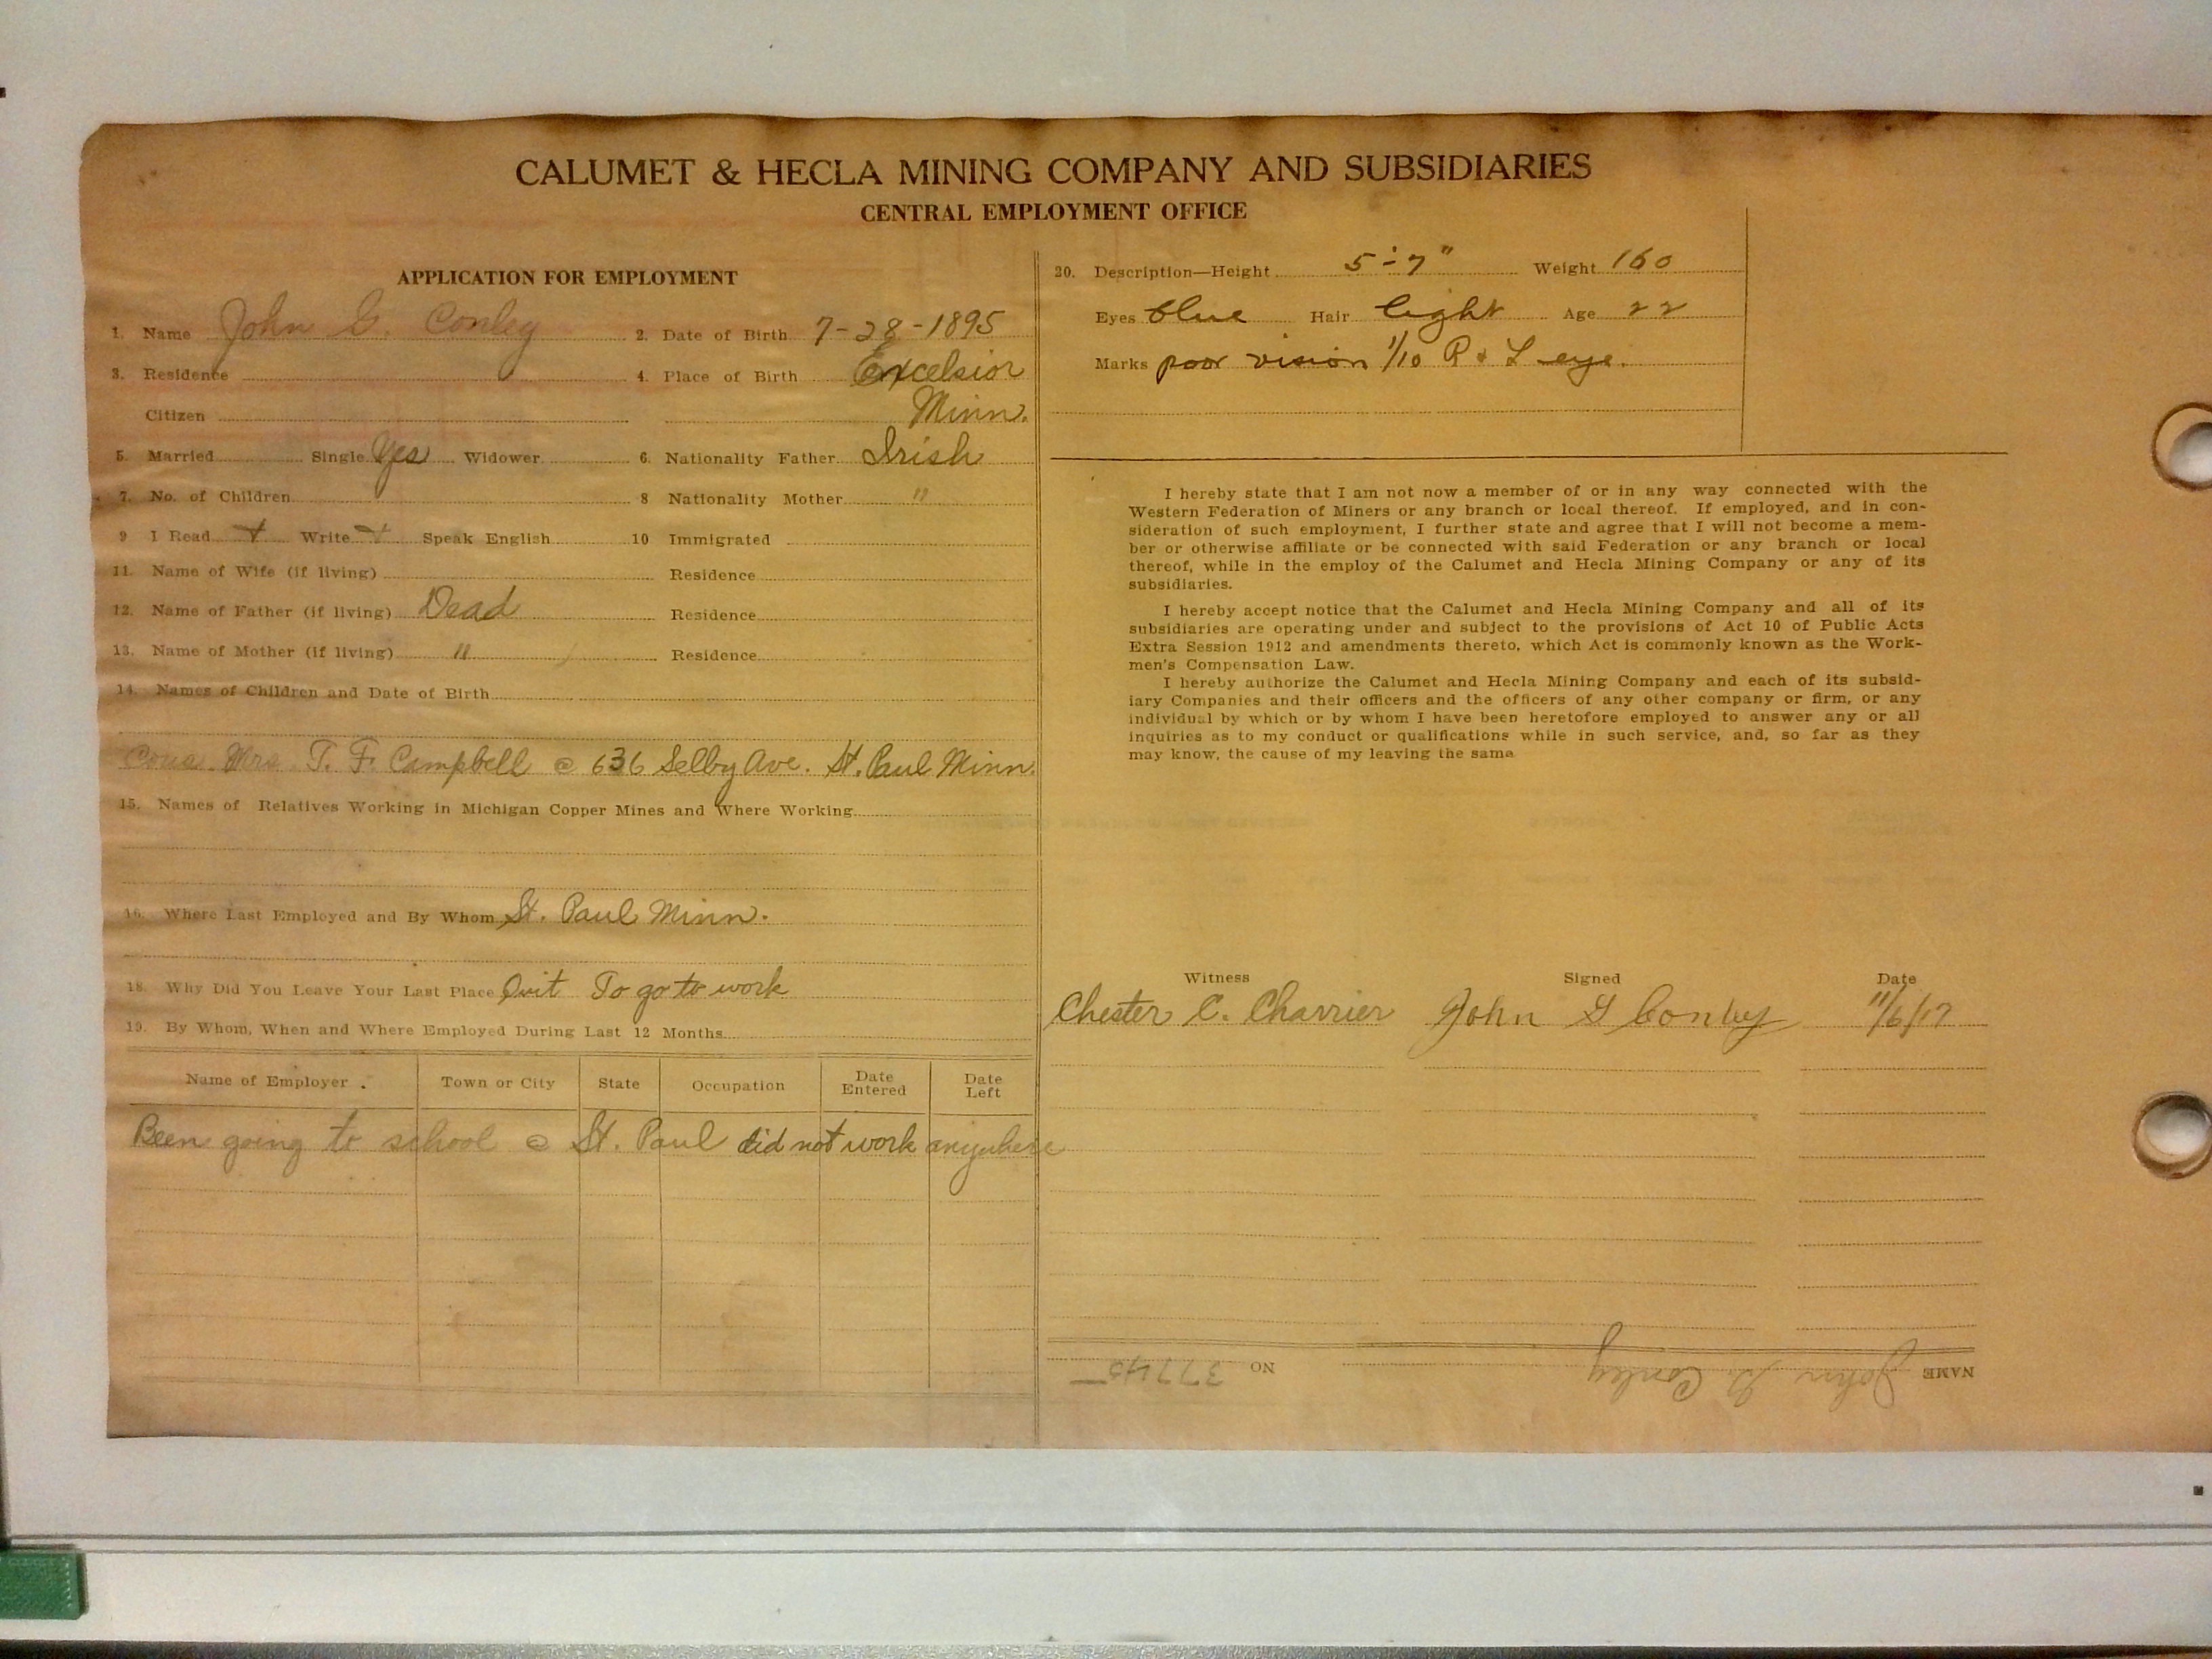 CALUMET & HECLA MINING COMPANY AND SUBSIDIARIES
CENTRAL EMPLOYMENT OFFICE
APPLICATION FOR EMPLOYMENT
1. Name John G. Conley 2. Date of Birth 7-28-1895
3. Residence 4. Place of Birth Excelsior
Citizen Minn.
5. Married Single Yes Widower 6. Nationality Father Irish
7. No. of Children 8 Nationality Mother "
9 I Read + Write + Speak English 10 Immigrated
11. Name of Wife (if living) Residence
12. Name of Father (if living) Dead Residence
13. Name of Mother (if living) " Residence
14. Names of Children and Date of Birth
Cous. Mrs. T. F. Campbell @ 636 Selby Ave. St. Paul Minn.
15. Names of Relatives Working in Michigan Copper Mines and Where Working
16. Where Last Employed and By Whom St. Paul Minn.
18. Why Did You Leave Your Last Place Quit To go to work
19. By Whom, When and Where Employed During Last 12 Months
Name of Employer Town or City State Occupation Date Entered Date Left
Been going to school @ St. Paul did not work anywhere
20. Description—Height 5-7" Weight 160
Eyes blue Hair light Age 22
Marks poor vision 1/10 R + L eye.
I hereby state that I am not now a member of or in any way connected with the
Western Federation of Miners or any branch or local thereof. If employed, and in con-
sideration of such employment, I further state and agree that I will not become a mem-
ber or otherwise affiliate or be connected with said Federation or any branch or local
thereof, while in the employ of the Calumet and Hecla Mining Company or any of its
subsidiaries.
I hereby accept notice that the Calumet and Hecla Mining Company and all of its
subsidiaries are operating under and subject to the provisions of Act 10 of Public Acts
Extra Session 1912 and amendments thereto, which Act is commonly known as the Work-
men's Compensation Law.
I hereby authorize the Calumet and Hecla Mining Company and each of its subsid-
iary Companies and their officers and the officers of any other company or firm, or any
individual by which or by whom I have been heretofore employed to answer any or all
inquiries as to my conduct or qualifications while in such service, and, so far as they
may know, the cause of my leaving the same
Witness Signed Date
Chester C. Charrier John G Conley 11/6/17
NAME John G. Conley NO 37745